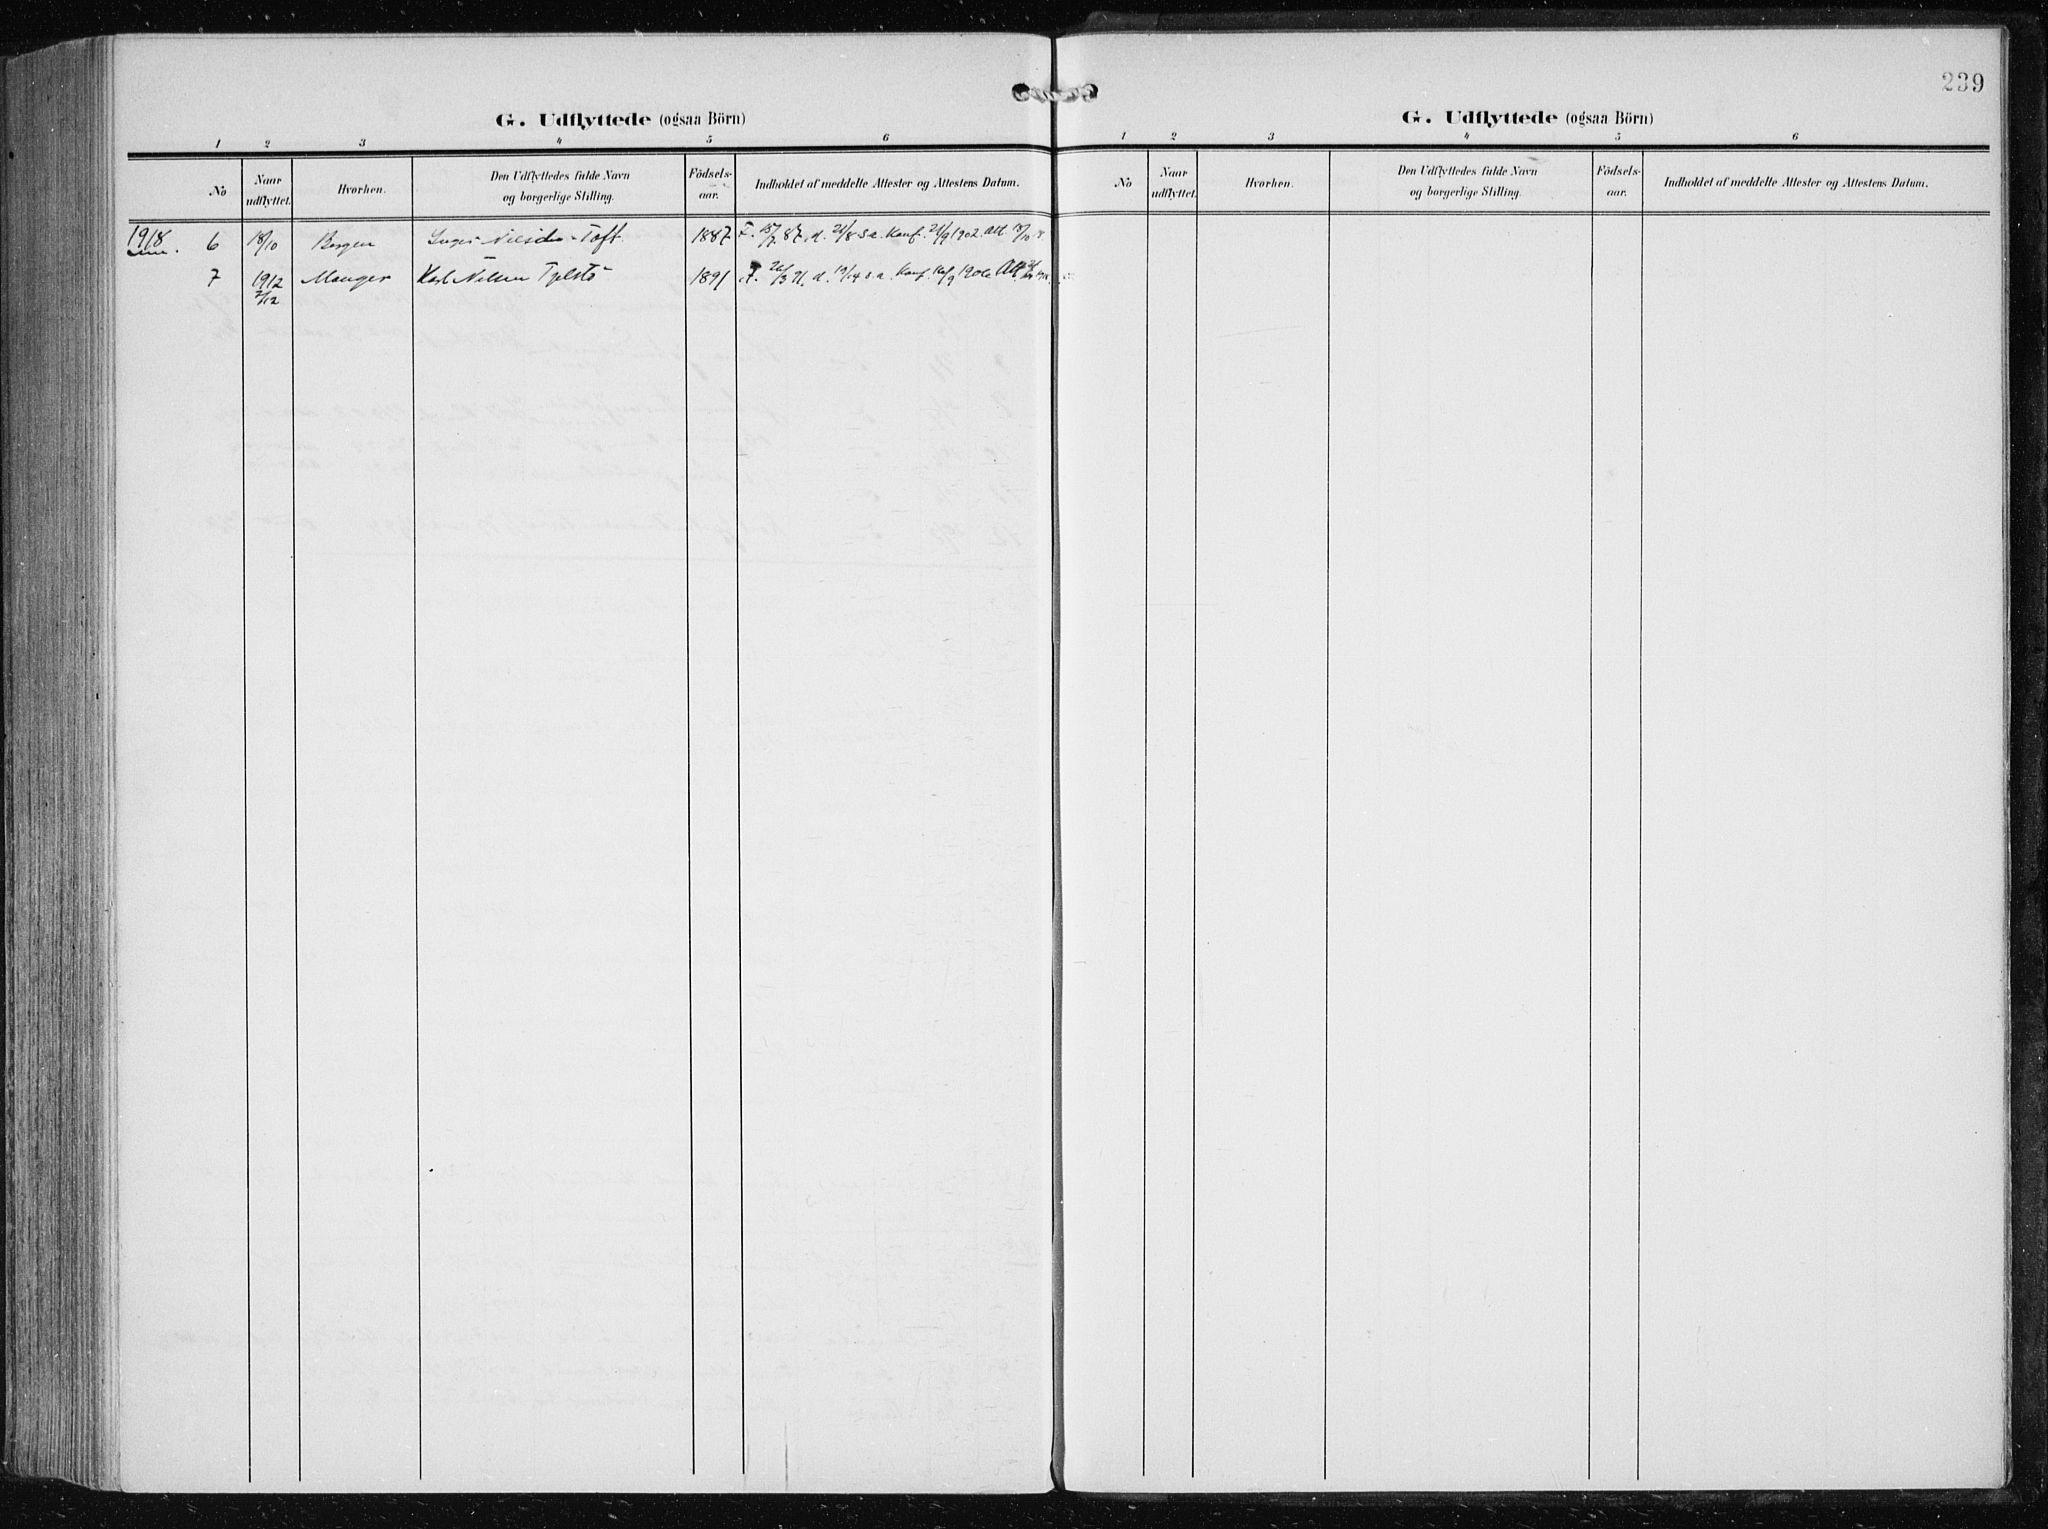 239
G. Udflyttede (ogsaa Börn)
1 2 3 4 5 6
No
Naar udflyttet.
Hvorhen.
Den Udflyttedes fulde Navn
og borgerlige Stilling.
Födsels-
aar.
Indholdet af meddelte Attester og Attestens Datum.
1918
6 18/10 Bergen Toft 1887 F. 15/7 87, d. 21/8 s a. Konf. 21/9 1902. Att. 18/10 18.
7 1912 Manger Karl Nilsen 1891 F. 26/3 91, d. 19/14 s a. Konf. 16/9 1906 Att.
2/12
G. Udflyttede (ogsaa Börn)
1 2 3 4 5 6
No
Naar
udflyttet.
Hvorhen.
Den Udflyttedes fulde Navn
og borgerlige Stilling.
Födsels-
aar.
Indholdet af meddelte Attester og Attestens Datum.